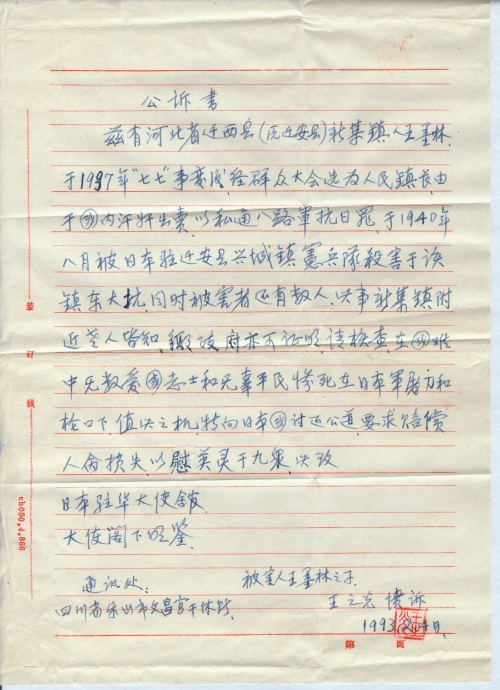 公诉书
兹有河北省迁西县(氏迁安县)新集镇人王墨林,
于1937年"七七"事变后,经群众大会选为人民镇长,由
于国内汗奸出卖,以私通八路軍抗日罪,于1940年
八月被日本驻迁安县兴城鎮憲兵隊殺害于该
鎮东大坑,同时被害者还有数人,此事新集鎮附
近老人皆知,縣政府亦可证明,请検查,在国难
中无数爱国志士和无辜平民惨死在日本軍屠刀和
枪口下,值此之机,特向日本国讨还公道,要求赔償
人命损失,以慰英灵于九泉,此致
日本驻华大使舘
大使阁下明鉴,
通讯处: 被害人王墨林之子,
四川省乐山市文昌宫干休所 王之光 俱诉,
1993
装
订
线
eb050.4.866
第 页